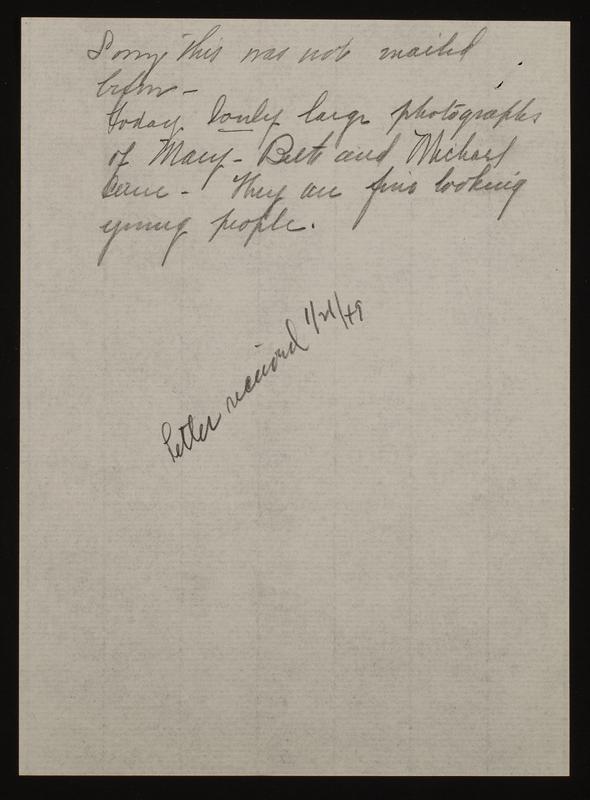 Sorry this was not mailed
before -
Today lovely large photographs
of Mary - Beth and Michael
came - They are fine looking
young people.
Letter received 1/21/49